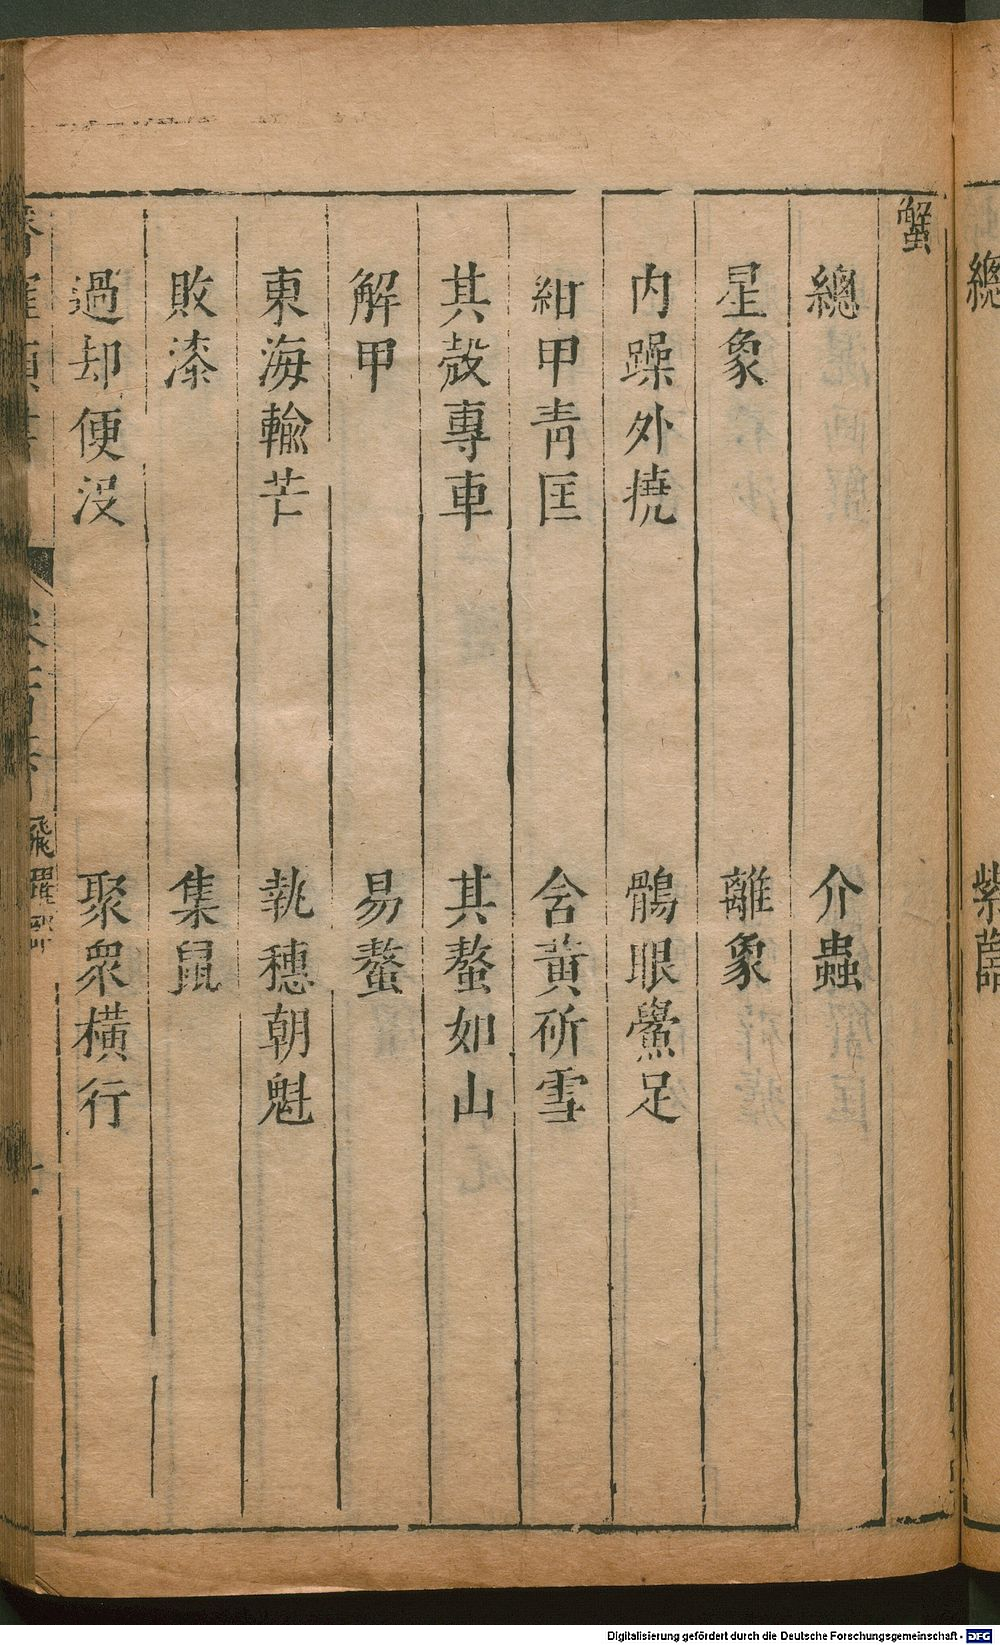 總
紫
蟹
總
介蟲
星象
離象
內躁外撓
鶻眼鱟足
紺甲靑匡
含黃斫雪
其殼專車
其螯如山
解甲
易螯
東海輸芒
執穗朝魁
敗漆
集鼠
過却便沒
聚衆橫行
飛躍部
Digitalisierung gefördert durch die Deutsche Forschungsgemeinschaft - DFG